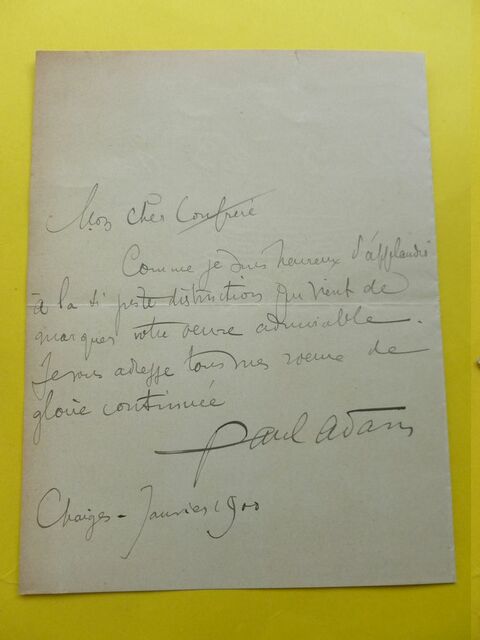 Mon cher Confrère
Comme je suis heureux d'applaudir
à la si juste distinction qui vient de
marquer votre œuvre admirable.
Je vous adresse tous mes voeux de
gloire continuée
Paul Adam
Janvier 1900